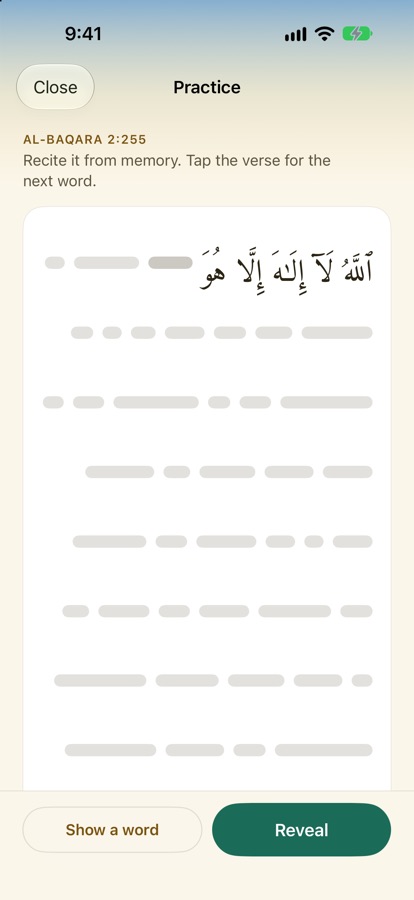 9:41
Close
Practice
AL-BAQARA 2:255
Recite it from memory. Tap the verse for the
next word.
ٱللَّهُ لَآ إِلَـٰهَ إِلَّا هُوَ
Show a word
Reveal